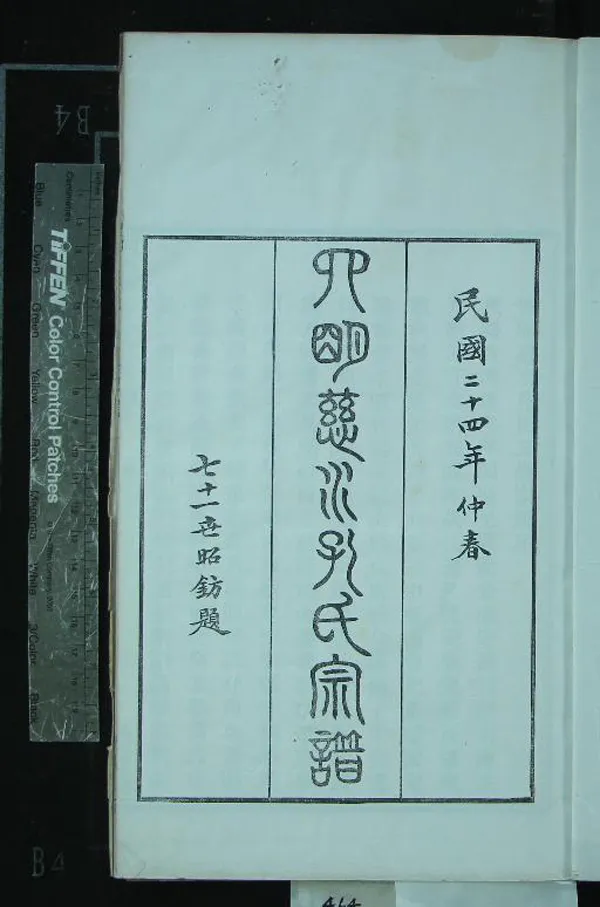 民國二十四年仲春
四明慈水孔氏宗譜
七十一世昭鈁題
B4
TIFFEN Color Control Patches
Centimetres
Inches
Blue
Cyan
Green
Yellow
Red
Magenta
White
3/Color
Black
B4
464